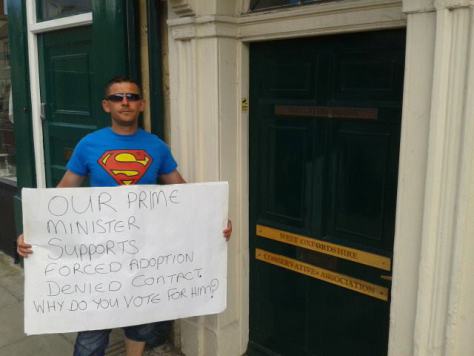 OUR PRIME
MINISTER
SUPPORTS
FORCED ADOPTION
DENIED CONTACT.
WHY DO YOU VOTE FOR HIM?
WEST OXFORDSHIRE
CONSERVATIVE ASSOCIATION